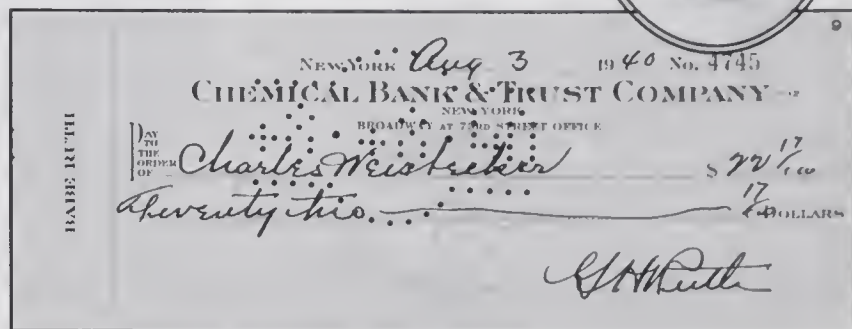 9
NEW YORK Aug 3 1940 No. 4745
CHEMICAL BANK & TRUST COMPANY
NEW YORK
BROADWAY AT 73RD STREET OFFICE
PAY TO THE ORDER OF Charles Weisbecker $ 22 17/100
Twenty two 17/100 DOLLARS
G H Ruth
BABE RUTH